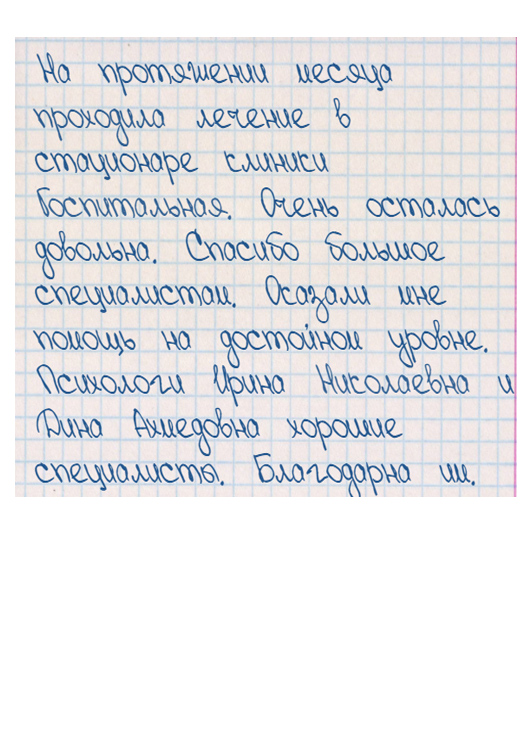 На протяжении месяца
проходила лечение в
стационаре клиники
Госпитальная. Очень осталась
довольна. Спасибо большое
специалистам. Оказали мне
помощь на достойном уровне.
Психологи Ирина Николаевна и
Дина Ахмедовна хорошие
специалисты. Благодарна им.